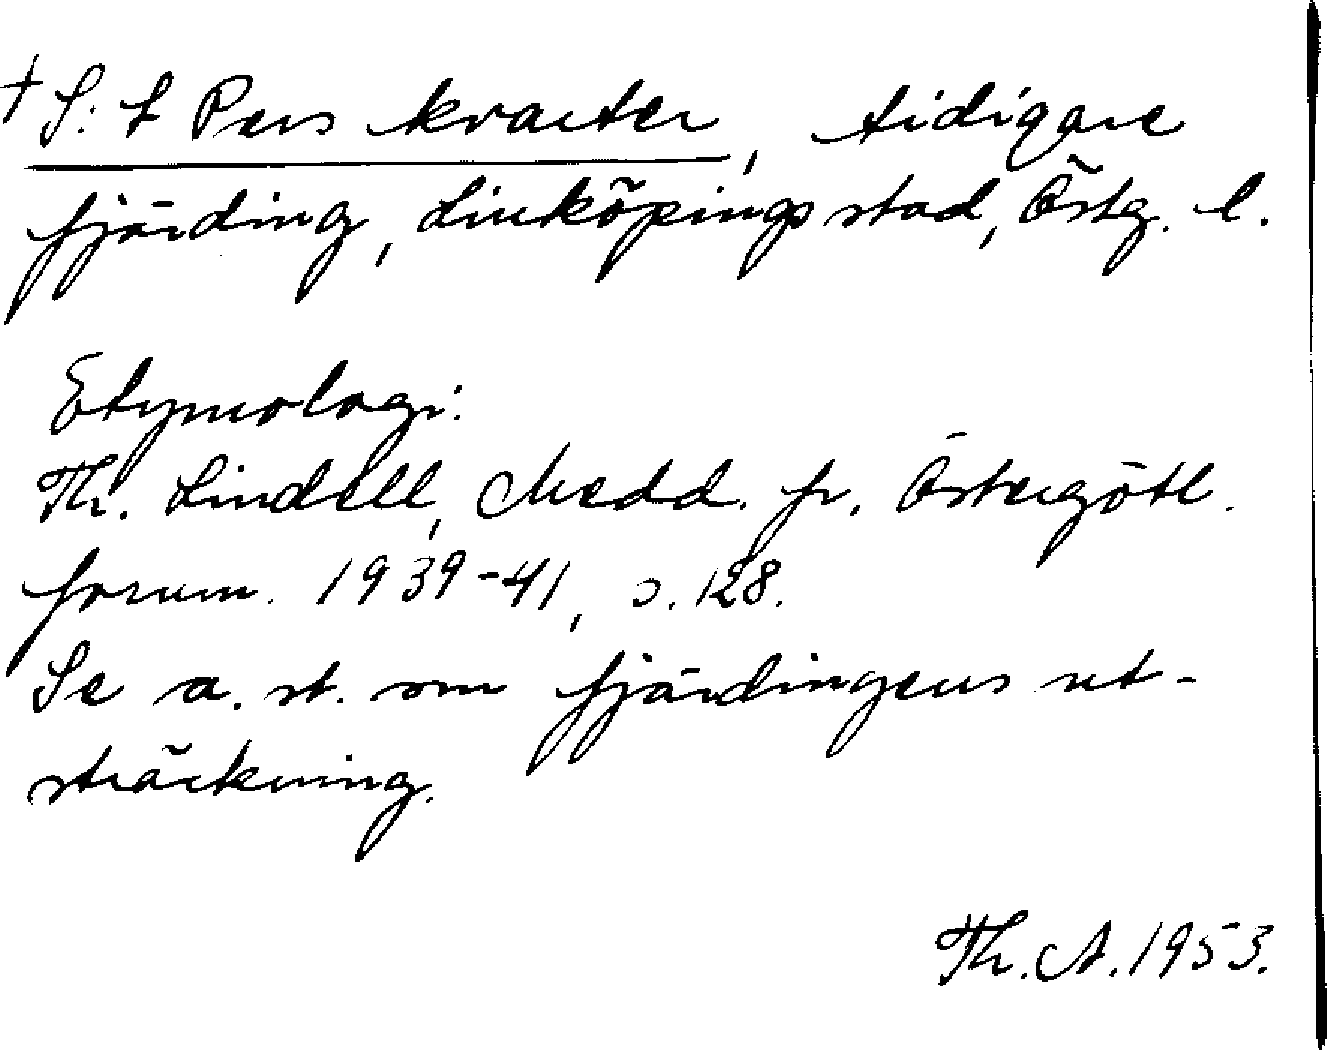 † S:t Pers kvarter, tidigare
fjärding, Linköpings stad, Östg. l.
Etymologi:
Th. Lindell, Medd. fr. Östergötl.
fornm. 1939-41, s. 128.
Se a. st. om fjärdingens ut-
sträckning.
Th. A. 1953.